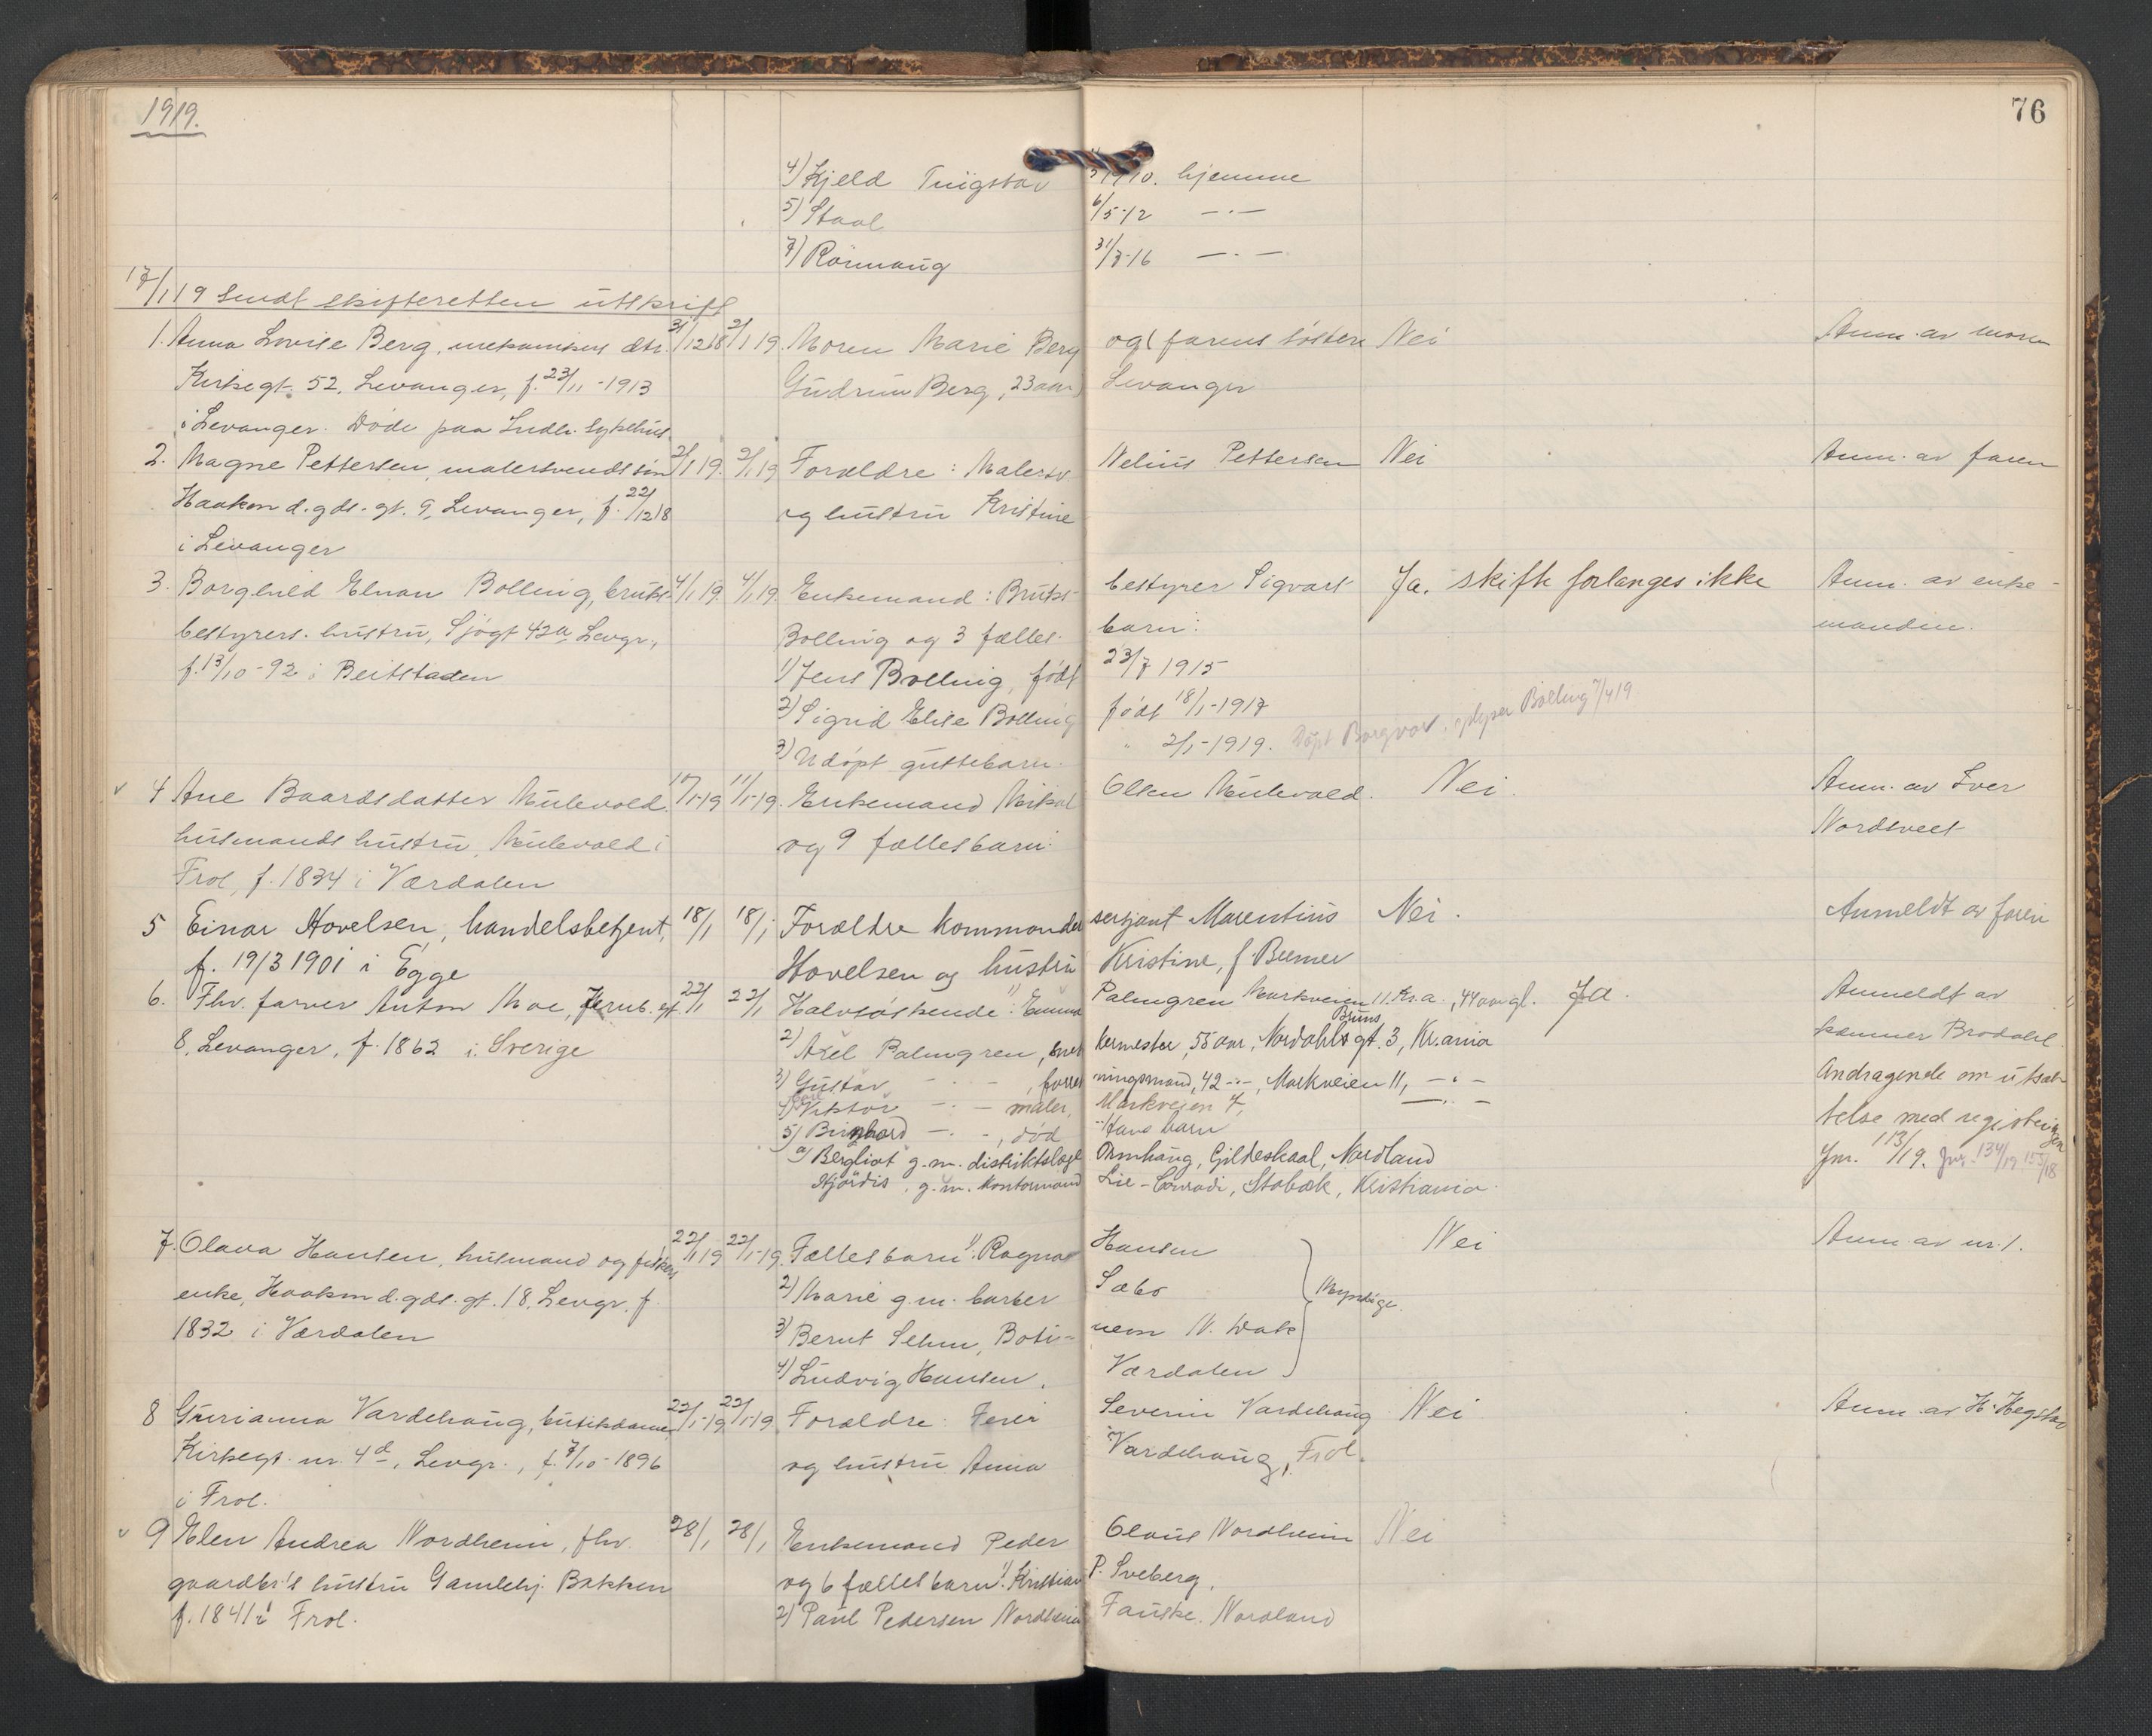 1919.
76
4) Kjeld Tingstav 3/9 10. hjemme
5) Staal 6/5-12 — . —
7) Rönnaug 31/3-16 — . —
17/1 19 Sendt skifteretten utskrift
1. Anna Lovise Berg, mekanikers dtr. 31/12 18 2/1 19. Moren Marie Berg og (farens söster Nei Anm. av moren
Kirkegt. 52, Levanger, f. 23/11-1913 Gudrun Berg, 23 aar) Levanger
i Levanger. Döde paa Indh. sykehus
2. Magne Pettersen, malersvends sön 2/1 19. 2/1 19 Forældre: Malersv. Nelius Pettersen Nei Anm. av faren
Haakon d. gds. gt. 9, Levanger, f. 22/12 18 og hustru Kristine
i Levanger
3. Borghild Elnan Bolling, bruks- 4/1 19. 4/1 19. Enkemand: Bruks- bestyrer Sigvart Ja. skifte forlanges ikke Anm. av enke-
bestyrers hustru, Sjögt 42a, Levgr., Bolling og 3 fælles- barn: manden.
f. 13/10-92 i Beitstaden 1) Jens Bolling, födt 23/7 1915
2) Sigrid Elise Bolling födt 18/1-1917
3) Udöpt guttebarn. " 2/1-1919. Döpt Borgvar Bolling 7/4 19
4 Ane Baardsdatter Mulevold. 10/1-19 11/1-19. Enkemand Mikal Olsen Mulevold. Nei. Anm. av Iver
husmands hustru, Mulevold i og 9 fællesbarn: Nordtveit
Frol, f. 1834 i Værdalen
5 Einar Hovelsen, handelsbetjent, 18/1 18/1 Forældre kommander sersjant Marentius Nei. Anmeldt av faren
f. 19/3 1901 i Egge Hovelsen og hustru Kristine, f Beemer
6. Fhv. farver Anton Moe, Jernb. gt. 22/1 22/1 Halvsöskende: 1) Emma Palmgren Markveien 11. Kr.a., 44 aar gl. Ja. Anmeldt av
8, Levanger, f. 1862 i Sverige 2) Axel Palmgren, snek kermester, 55 aar, Nordahl Bruns gt. 3, Kr.ania kæmner Brodahl.
3) Gustav — . — , forret ningsmand, 42 — . —, Markveien 11, — . — Andragende om utsæt-
4) Carl Viktor — . — maler, Markveien 7, — . — telse med registeringen
5) Birghard — . —, död Hans barn Jnr. 113/19. Jnr. 134/19 155/18
a) Bergliot g.m. distriktslæge Ormhaug, Gildeskaal, Nordland
Hjördis, g.m. kontormand Lie-Conradi, Stabæk, Kristiania.
7. Olava Hansen, husmand og fiskers 22/1 19 22/1-19. Fællesbarn: 1) Ragna Hansen Nei Anm. av nr. 1.
enke, Haakon d. gds. gt. 18, Levgr. f. 2) Marie g.m. barber Sæbö Myndige.
1832 i Værdalen 3) Bernt Selnn, Boti- nean N. Dak
4) Ludvig Hansen, Værdalen
8 Gurianna Vardehaug, butikdame 22/1-19 22/1-19 Forældre: Feier Severin Vardehaug Nei Anm. av H. Hegstad
Kirkegt. nr. 4d, Levgr., f. 7/10-1896 og hustru Anna Vardehaug, Frol.
i Frol.
9 Elen Andrea Nordheim, fhv. 28/1 28/1 Enkemand Peder Olaus Nordheim Nei
gaardbr.'s hustru Gamlehj. Bakken og 6 fællesbarn: 1) Kristian P. Sveberg,
f. 1841 i Frol. 2) Paul Pedersen Nordheim Fauske. Nordland